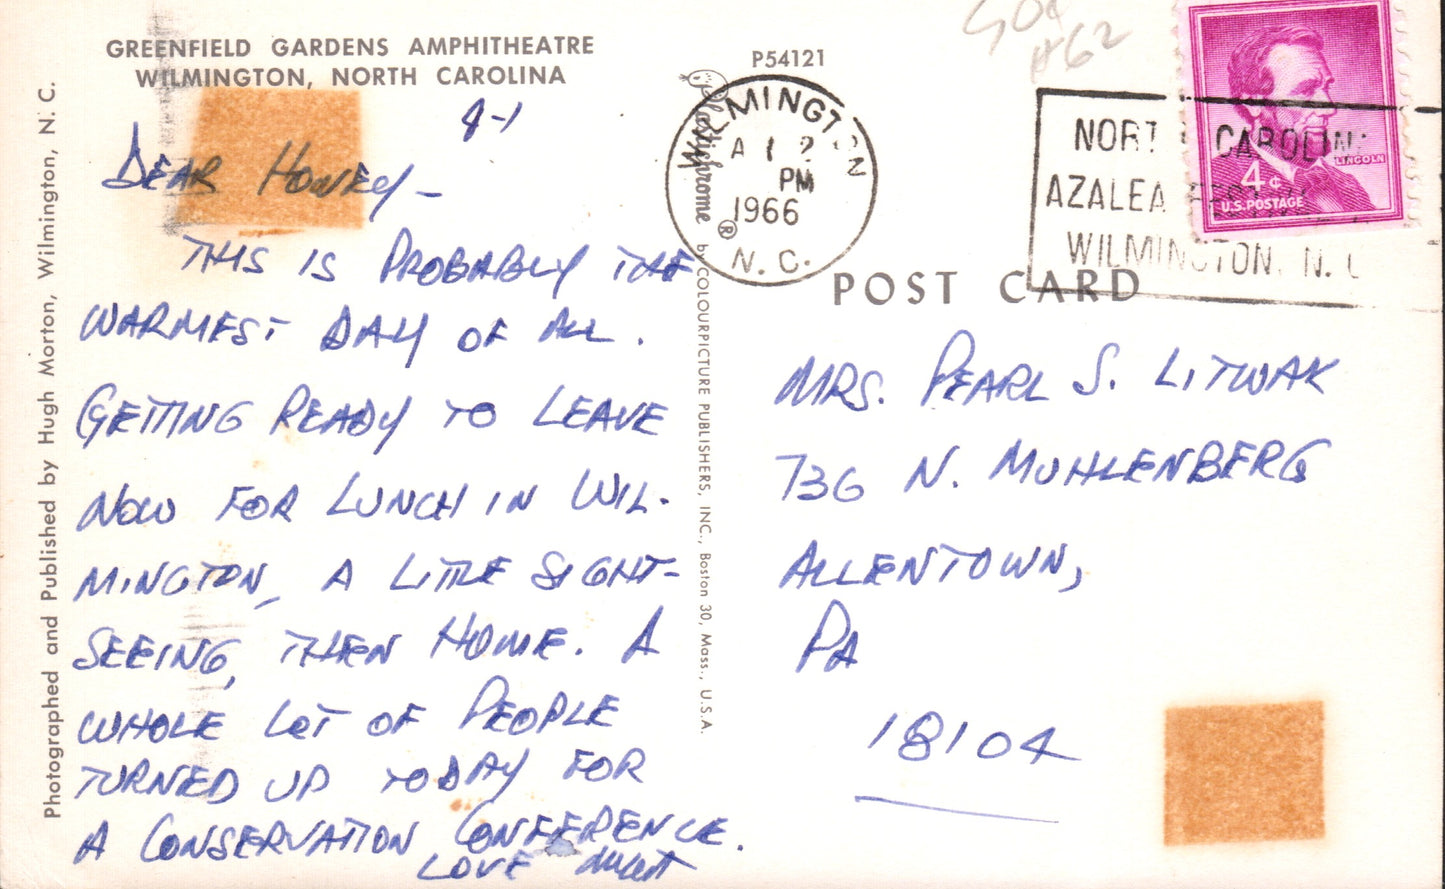 GREENFIELD GARDENS AMPHITHEATRE
WILMINGTON, NORTH CAROLINA
4-1
DEAR HONEY -
THIS IS PROBABLY THE
WARMEST DAY OF ALL.
GETTING READY TO LEAVE
NOW FOR LUNCH IN WIL-
MINGTON, A LITTLE SIGHT-
SEEING, THEN HOME. A
WHOLE LOT OF PEOPLE
TURNED UP TODAY FOR
A CONSERVATION CONFERENCE.
LOVE
Photographed and Published by Hugh Morton, Wilmington, N. C.
P54121
Plastichrome ® by COLOURPICTURE PUBLISHERS, INC., Boston 30, Mass., U.S.A.
WILMINGTON
PM
1966
N. C.
50¢
#62
NORTH CAROLINA
AZALEA FESTIVAL
WILMINGTON, N. C
LINCOLN
4¢
U.S. POSTAGE
POST CARD
MRS. PEARL S. LITWAK
736 N. MUHLENBERG
ALLENTOWN,
PA
18104